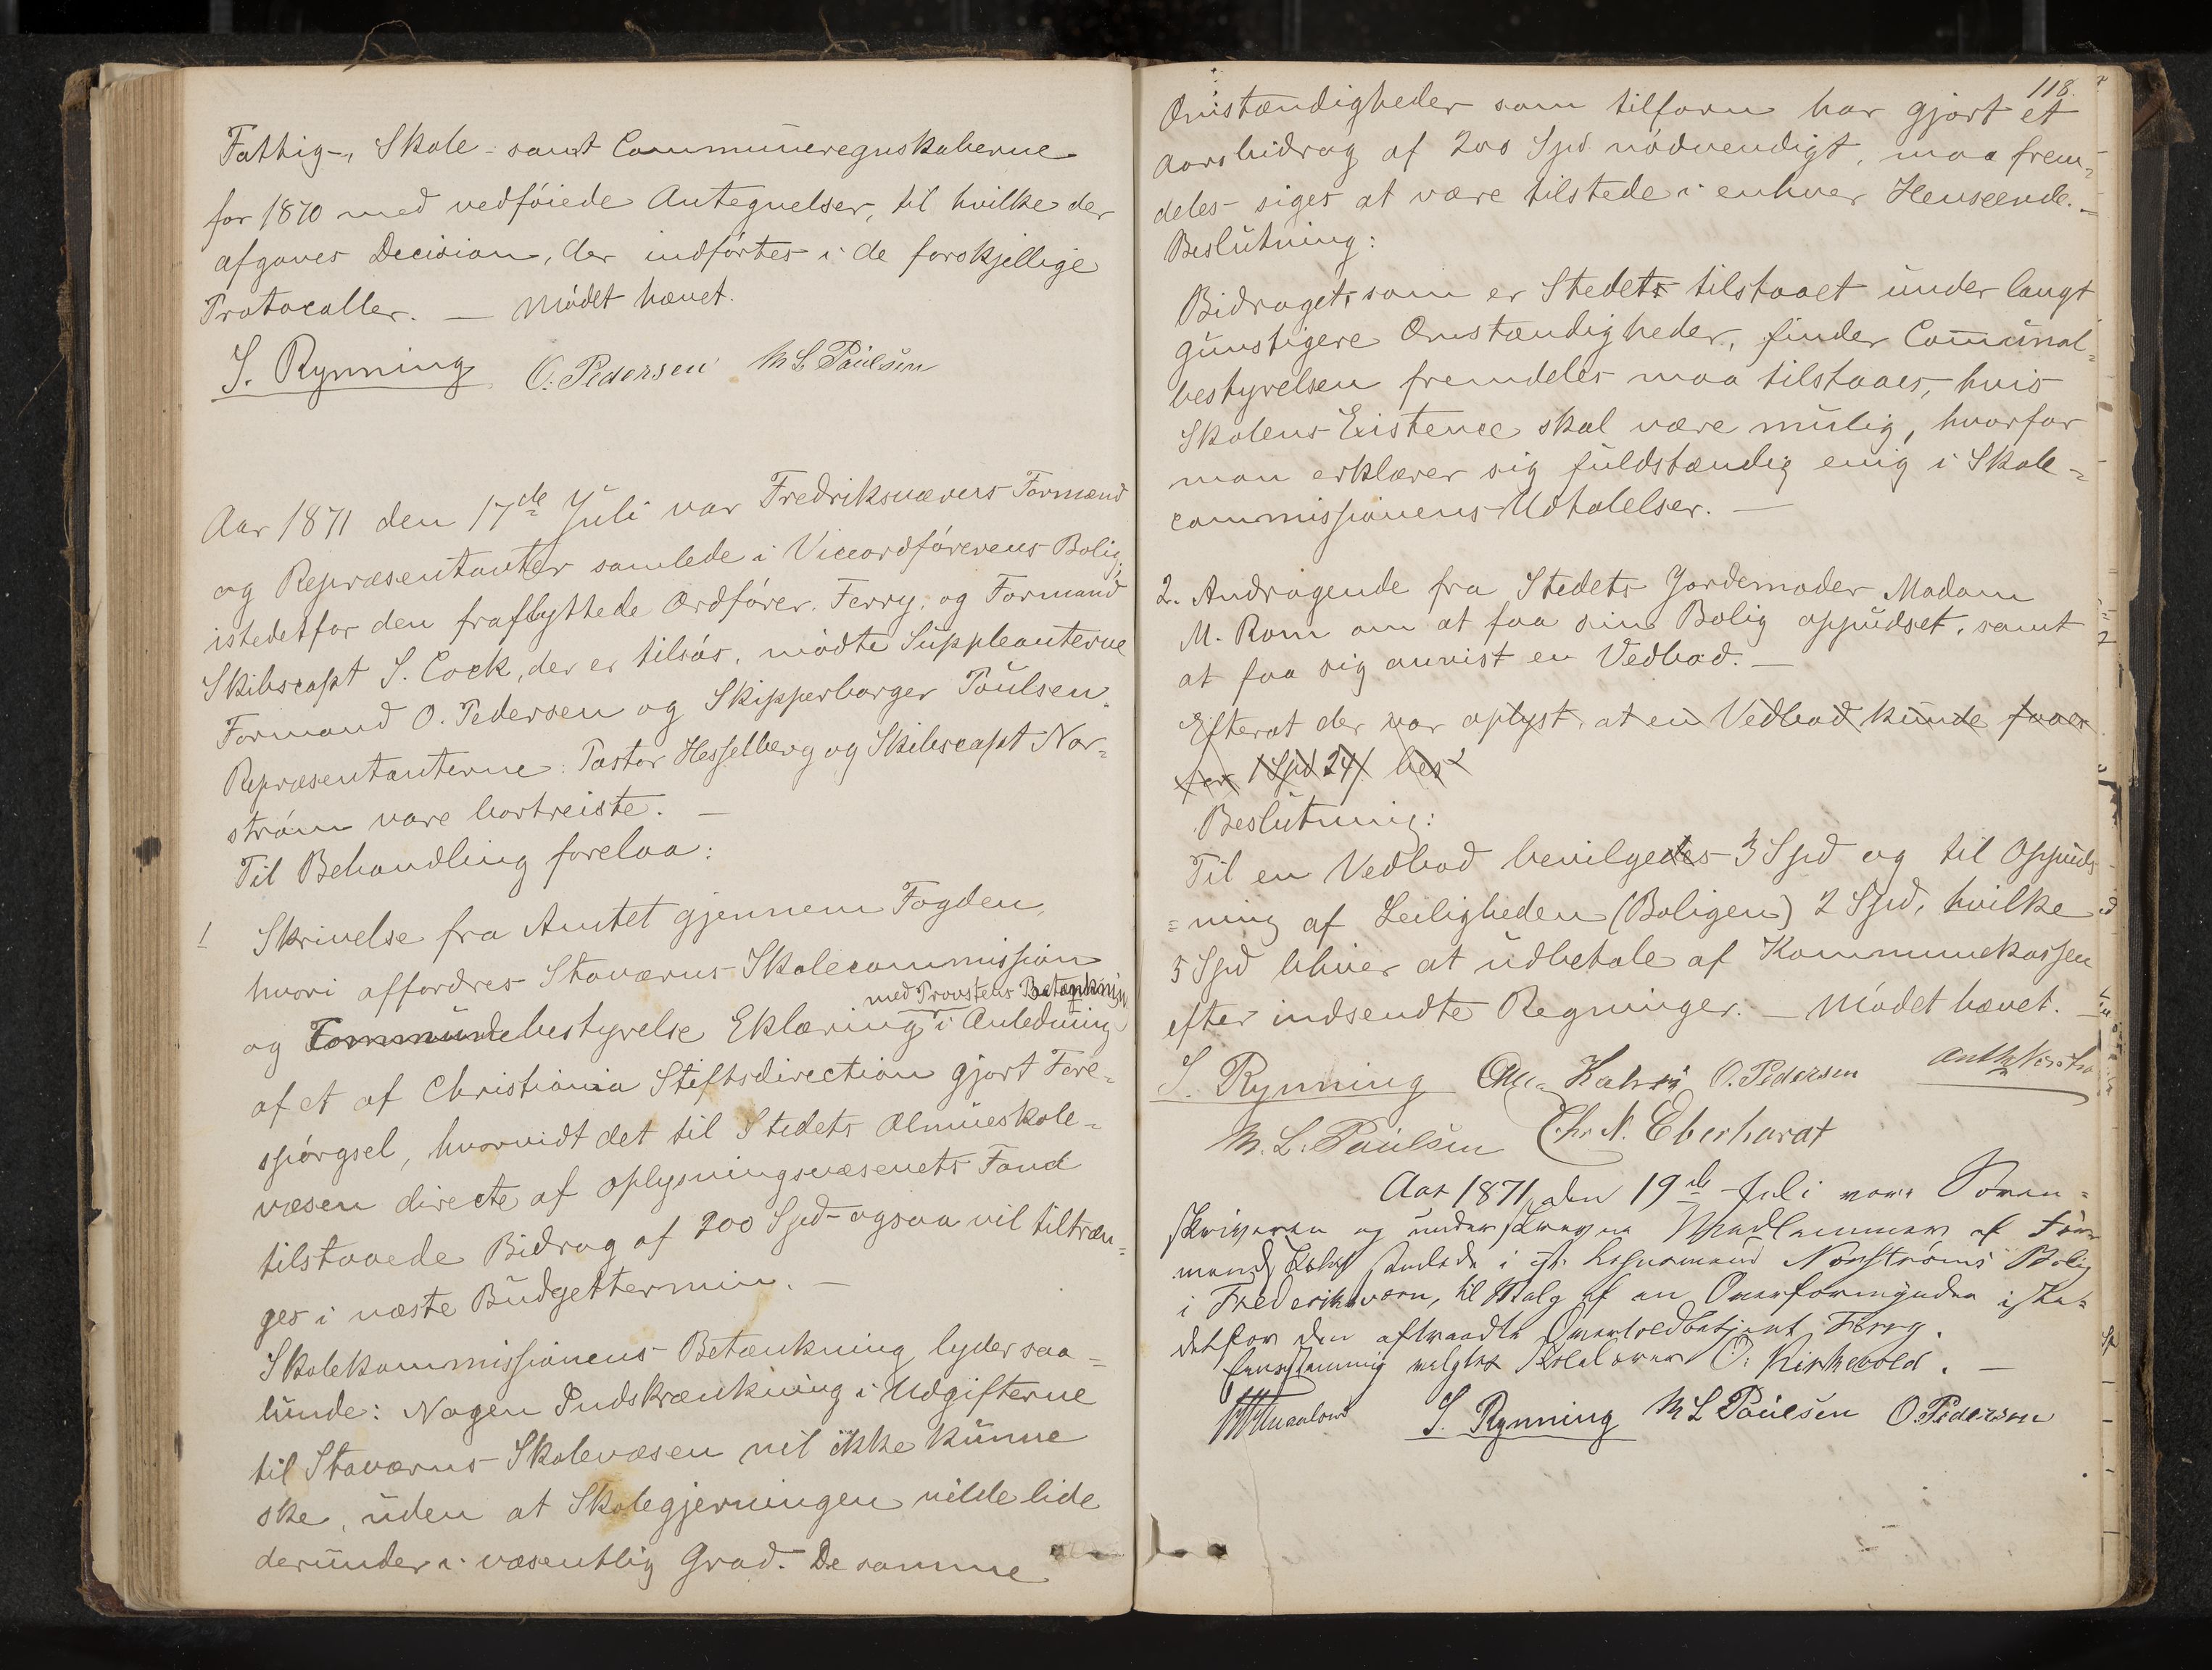 Fattig-, Skole- samt Communeregnskaberne
for 1870 med vedføiede Antegnelser, til hvilke der
afgaves Decision, der indførtes i de forskjellige
Protocoller. — Mødet hævet.
S. Rynning O. Pedersen M L Paulsen
Aar 1871 den 17de Juli var Fredriksværns Formænd
og Repræsentanter samlede i Viceordførerens Bolig;
istedetfor den fraflyttede Ordfører, Ferry, og Formand
Skibscapt S. Cock, der er tilsøs, mødte Suppleanterne
Formand O. Pedersen og Skipperborger Paulsen.
Repræsentanterne: Pastor Hesselberg og Skibscapt Nor=
strøm vare bortreiste. —
Til Behandling forelaa:
1 Skrivelse fra Amtet gjennem Fogden,
hvori affordres Staværns Skolecommission
med Provstens Betænkning
og Communebestyrelse Eklæring i Anledning
af et af Christiania Stiftsdirection gjort Fore=
spørgsel, hvorvidt det til Stedets Almueskole=
væsen directe af Oplysningsvæsenets Fond
tilstaaede Bidrag af 200 Spd ogsaa vil tiltræn=
ges i næste Budgettermin. —
Skolekommissionens Betænkning lyder saa=
lunde: Nogen Indskrænkning i Udgifterne
til Staværns Skolevæsen vil ikke kunne
ske, uden at Skolegjerningen vilde lide
derunder i væsentlig Grad. De samme
118.
Omstændigheder som tilforn har gjort et
Aarsbidrag af 200 Spd nødvendigt, maa frem=
deles siges at være tilstede i enhver Henseende. —
Beslutning:
Bidraget, som er Stedets tilstaaet under langt
gunstigere Omstændigheder, finder Comunal=
bestyrelsen fremdeles maa tilstaaes, hvis
Skolens Existence skal være mulig, hvorfor
man erklærer sig fuldstændig enig i Skole=
commissionens Udtalelser. —
2. Andragende fra Stedets Jordemoder Madam
M. Rom om at faa sin Bolig oppudset, samt
at faa sig anvist en Vedbod. —
Efterat der var oplyst, at en Vedbod kunde faaes
for 1 Spd 24
Beslutning:
Til en Vedbod bevilgedes 3 Spd og til Oppuds
=ning af Leiligheden (Boligen) 2 Spd, hvilke
5 Spd bliver at udbetale af Kommunekassen
efter indsendte Regninger. — Mødet hævet. —
S. Rynning O. Pedersen
M. L. Paulsen Chr. N. Eberhardt
Aar 1871, den 19de Juli vare Soren=
skriveren og underskrevne Medlemmer af For
mandskabet samlede i Norstrøms Bolig
i Frederiksværn, til Valg af en Overformynder iste=
detfor den aftraadte Overtoldbetjent Ferry.
Eenstemmig valgtes O. Kirkevold. —
S. Rynning M L Paulsen O. Pedersen